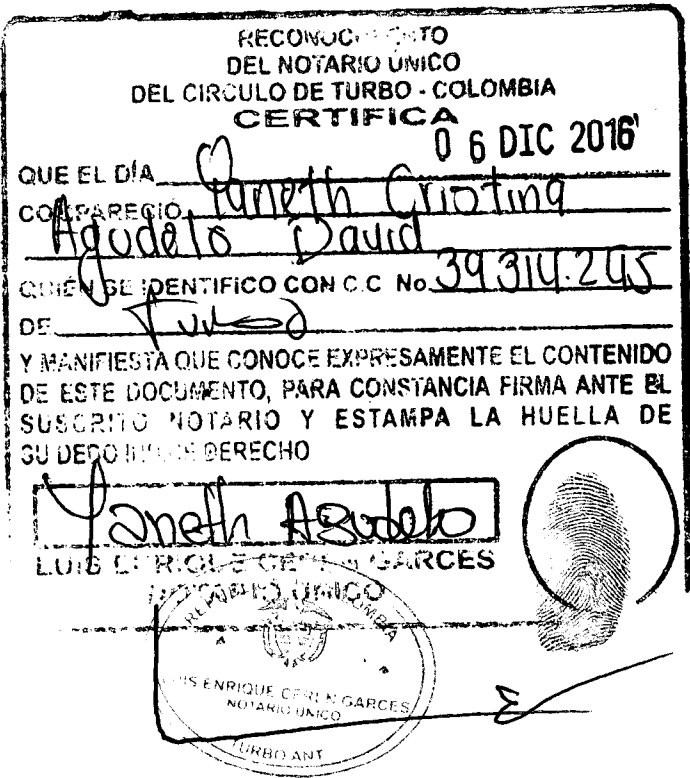 RECONOCIMIENTO
DEL NOTARIO ÚNICO
DEL CIRCULO DE TURBO - COLOMBIA
CERTIFICA
06 DIC 2016
QUE EL DÍA
COMPARECIÓ Yaneth Cristina
Agudelo David
QUIÉN SE IDENTIFICO CON C.C No. 39.314.245
DE Turbo
Y MANIFIESTA QUE CONOCE EXPRESAMENTE EL CONTENIDO
DE ESTE DOCUMENTO, PARA CONSTANCIA FIRMA ANTE EL
SUSCRITO NOTARIO Y ESTAMPA LA HUELLA DE
SU DEDO INDICE DERECHO
Yaneth Agudelo
LUIS ENRIQUE CEREN GARCES
NOTARIO ÚNICO
REPUBLICA DE COLOMBIA
LUIS ENRIQUE CEREN GARCES
NOTARIO UNICO
TURBO ANT